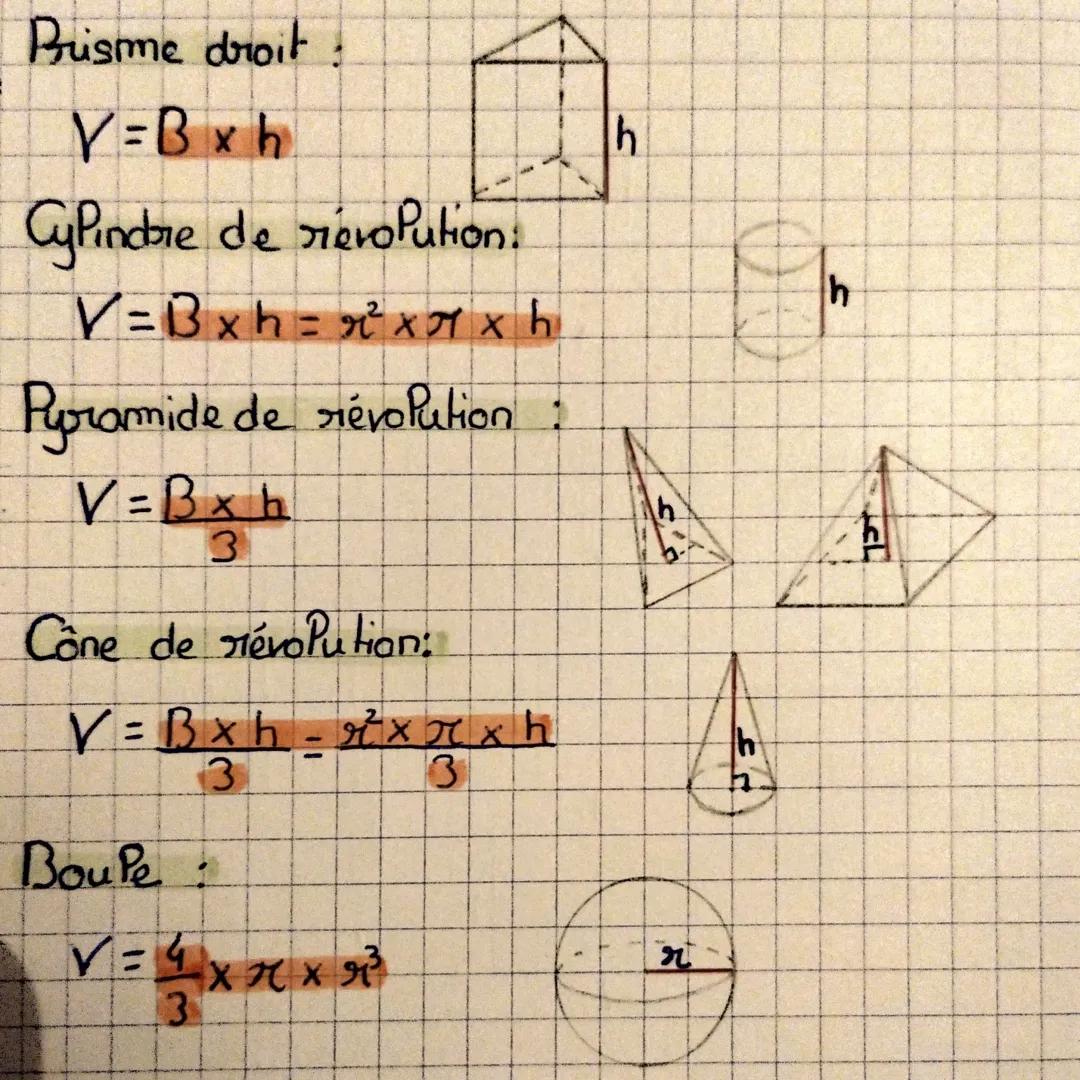 Prisme droit :
V = B x h
h
Cylindre de révolution :
V = B x h = r² x π x h
h
Pyramide de révolution :
V = B x h
3
h
h
Cône de révolution :
V = B x h = r² x π x h
3 3
h
Boule :
V = 4 x π x r³
3
r